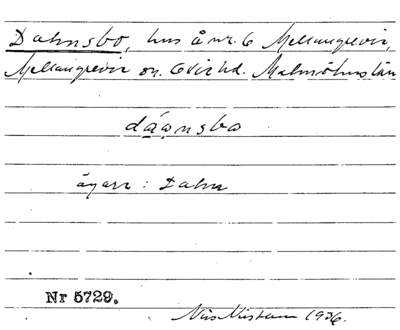 Dahnsbo, hus å nr. 6 Mellangrevie,
Mellangrevie sn. Oxie hd. Malmöhus län
dáo̯nsbo
ägare: Dahn
Nr 5729.
1936.